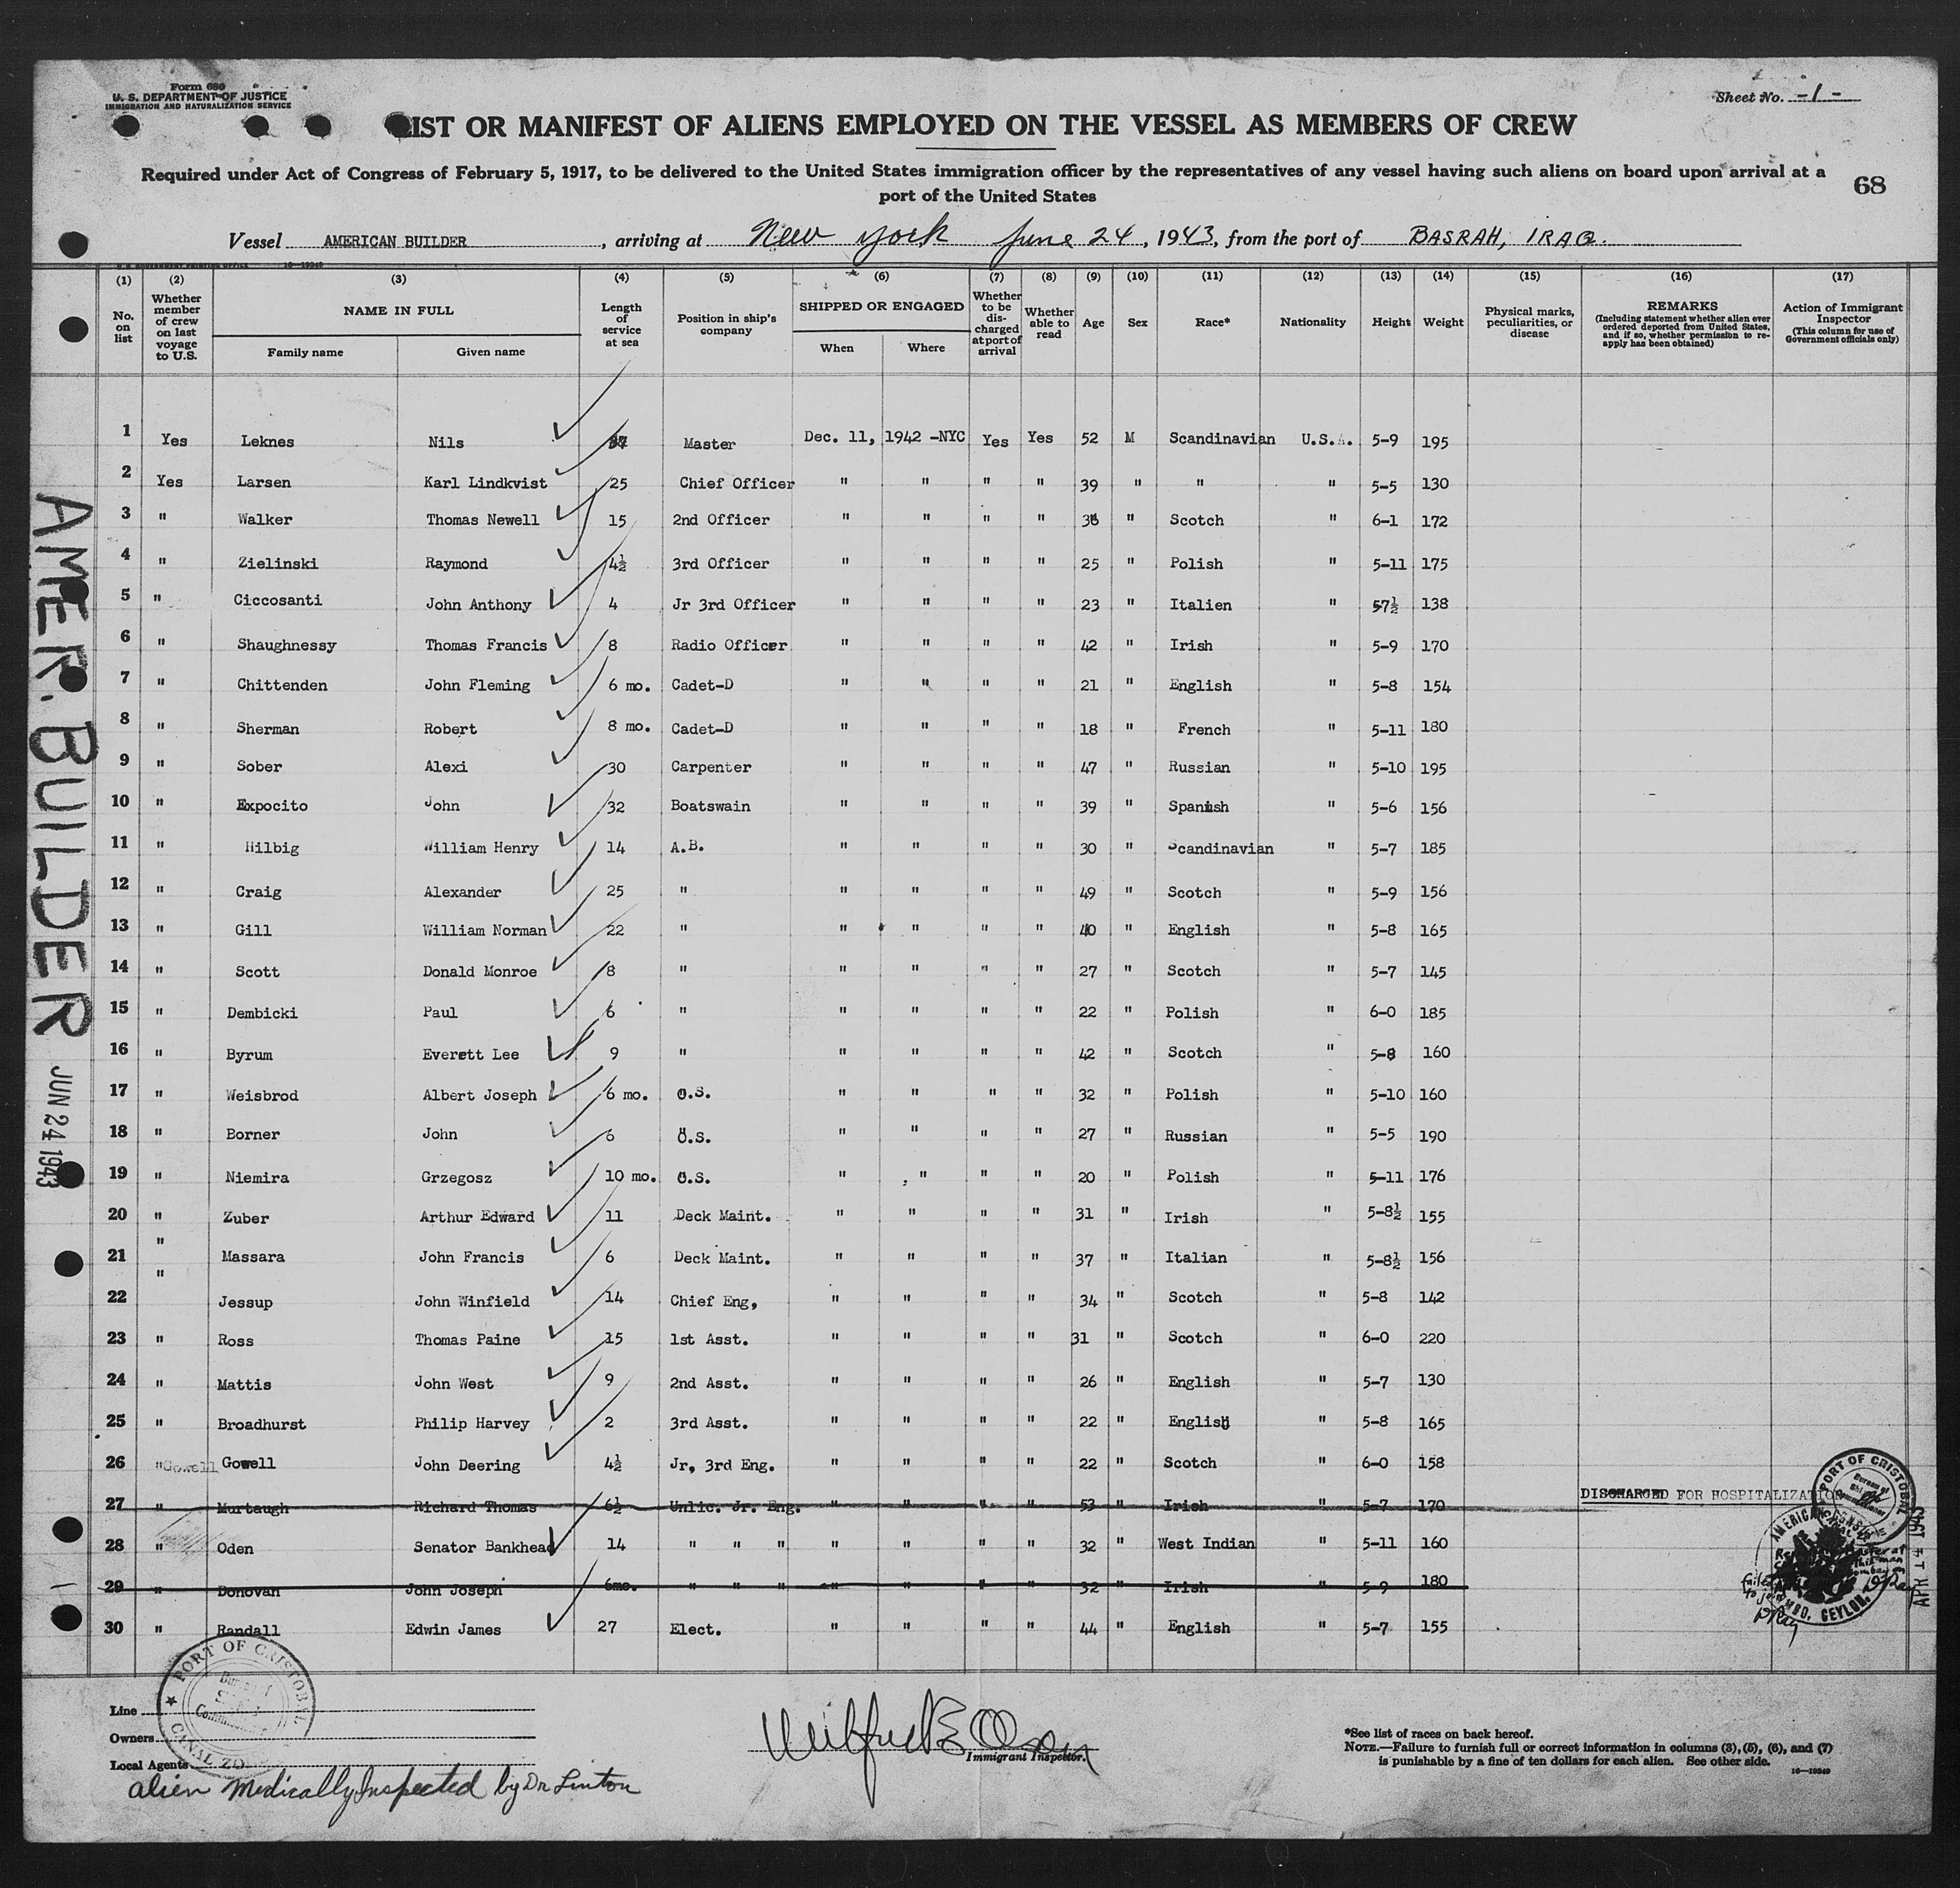 Form 680
U. S. DEPARTMENT OF JUSTICE
IMMIGRATION AND NATURALIZATION SERVICE
Sheet No. -1-
LIST OR MANIFEST OF ALIENS EMPLOYED ON THE VESSEL AS MEMBERS OF CREW
Required under Act of Congress of February 5, 1917, to be delivered to the United States immigration officer by the representatives of any vessel having such aliens on board upon arrival at a
port of the United States
68
Vessel AMERICAN BUILDER, arriving at New York June 24, 1943, from the port of BASRAH, IRAQ.
(1) No. on list (2) Whether member of crew on last voyage to U.S. (3) NAME IN FULL Family name Given name (4) Length of service at sea (5) Position in ship's company (6) SHIPPED OR ENGAGED When Where (7) Whether to be discharged at port of arrival (8) Whether able to read (9) Age (10) Sex (11) Race* (12) Nationality (13) Height (14) Weight (15) Physical marks, peculiarities, or disease (16) REMARKS (Including statement whether alien ever ordered deported from United States, and if so, whether permission to re-apply has been obtained) (17) Action of Immigrant Inspector (This column for use of Government officials only)
1 Yes Leknes Nils Master Dec. 11, 1942 -NYC Yes Yes 52 M Scandinavian U.S.A. 5-9 195
2 Yes Larsen Karl Lindkvist 25 Chief Officer " " " " 39 " " " 5-5 130
3 " Walker Thomas Newell 15 2nd Officer " " " " " Scotch " 6-1 172
4 " Zielinski Raymond 4½ 3rd Officer " " " " 25 " Polish " 5-11 175
5 " Ciccosanti John Anthony 4 Jr 3rd Officer " " " " 23 " Italien " 57½ 138
6 " Shaughnessy Thomas Francis 8 Radio Officer " " " " 42 " Irish " 5-9 170
7 " Chittenden John Fleming 6 mo. Cadet-D " " " " 21 " English " 5-8 154
8 " Sherman Robert 8 mo. Cadet-D " " " " 18 " French " 5-11 180
9 " Sober Alexi 30 Carpenter " " " " 47 " Russian " 5-10 195
10 " Expocito John 32 Boatswain " " " " 39 " Spanish " 5-6 156
11 " Hilbig William Henry 14 A.B. " " " " 30 " Scandinavian " 5-7 185
12 " Craig Alexander 25 " " " " " 49 " Scotch " 5-9 156
13 " Gill William Norman 22 " " " " " 40 " English " 5-8 165
14 " Scott Donald Monroe 8 " " " " " 27 " Scotch " 5-7 145
15 " Dembicki Paul 6 " " " " " 22 " Polish " 6-0 185
16 " Byrum Everett Lee 9 " " " " " 42 " Scotch " 5-8 160
17 " Weisbrod Albert Joseph 6 mo. O.S. " " " " 32 " Polish " 5-10 160
18 " Borner John 6 O.S. " " " " 27 " Russian " 5-5 190
19 " Niemira Grzegosz 10 mo. O.S. " " " " 20 " Polish " 5-11 176
20 " Zuber Arthur Edward 11 Deck Maint. " " " " 31 " Irish " 5-8½ 155
21 " Massara John Francis 6 Deck Maint. " " " " 37 " Italian " 5-8½ 156
22 " Jessup John Winfield 14 Chief Eng, " " " " 34 " Scotch " 5-8 142
23 " Ross Thomas Paine 15 1st Asst. " " " " 31 " Scotch " 6-0 220
24 " Mattis John West 9 2nd Asst. " " " " 26 " English " 5-7 130
25 " Broadhurst Philip Harvey 2 3rd Asst. " " " " 22 " English " 5-8 165
26 " Gowell Gowell John Deering 4½ Jr, 3rd Eng. " " " " 22 " Scotch " 6-0 158
27 " Murtaugh Richard Thomas 6½ Unlic. Jr. Eng. " " " " 53 " Irish " 5-7 170 DISCHARGED FOR HOSPITALIZATION
28 " Oden Senator Bankhead 14 " " " " " " " 32 " West Indian " 5-11 160
29 " Donovan John Joseph 6mo. " " " " " " " 32 " Irish " 5-9 180
30 " Randall Edwin James 27 Elect. " " " " 44 " English " 5-7 155
AMER. BUILDER JUN 24 1943
PORT OF CRISTOBAL
AMERICAN
CEYLON.
PORT OF CRISTOBAL
CANAL ZO
Line
Owners
Local Agents
Alien Medically Inspected by Dr Linton
Wilfred E Olson
Immigrant Inspector.
*See list of races on back hereof.
NOTE.—Failure to furnish full or correct information in columns (3), (5), (6), and (7)
is punishable by a fine of ten dollars for each alien. See other side.
16—19349